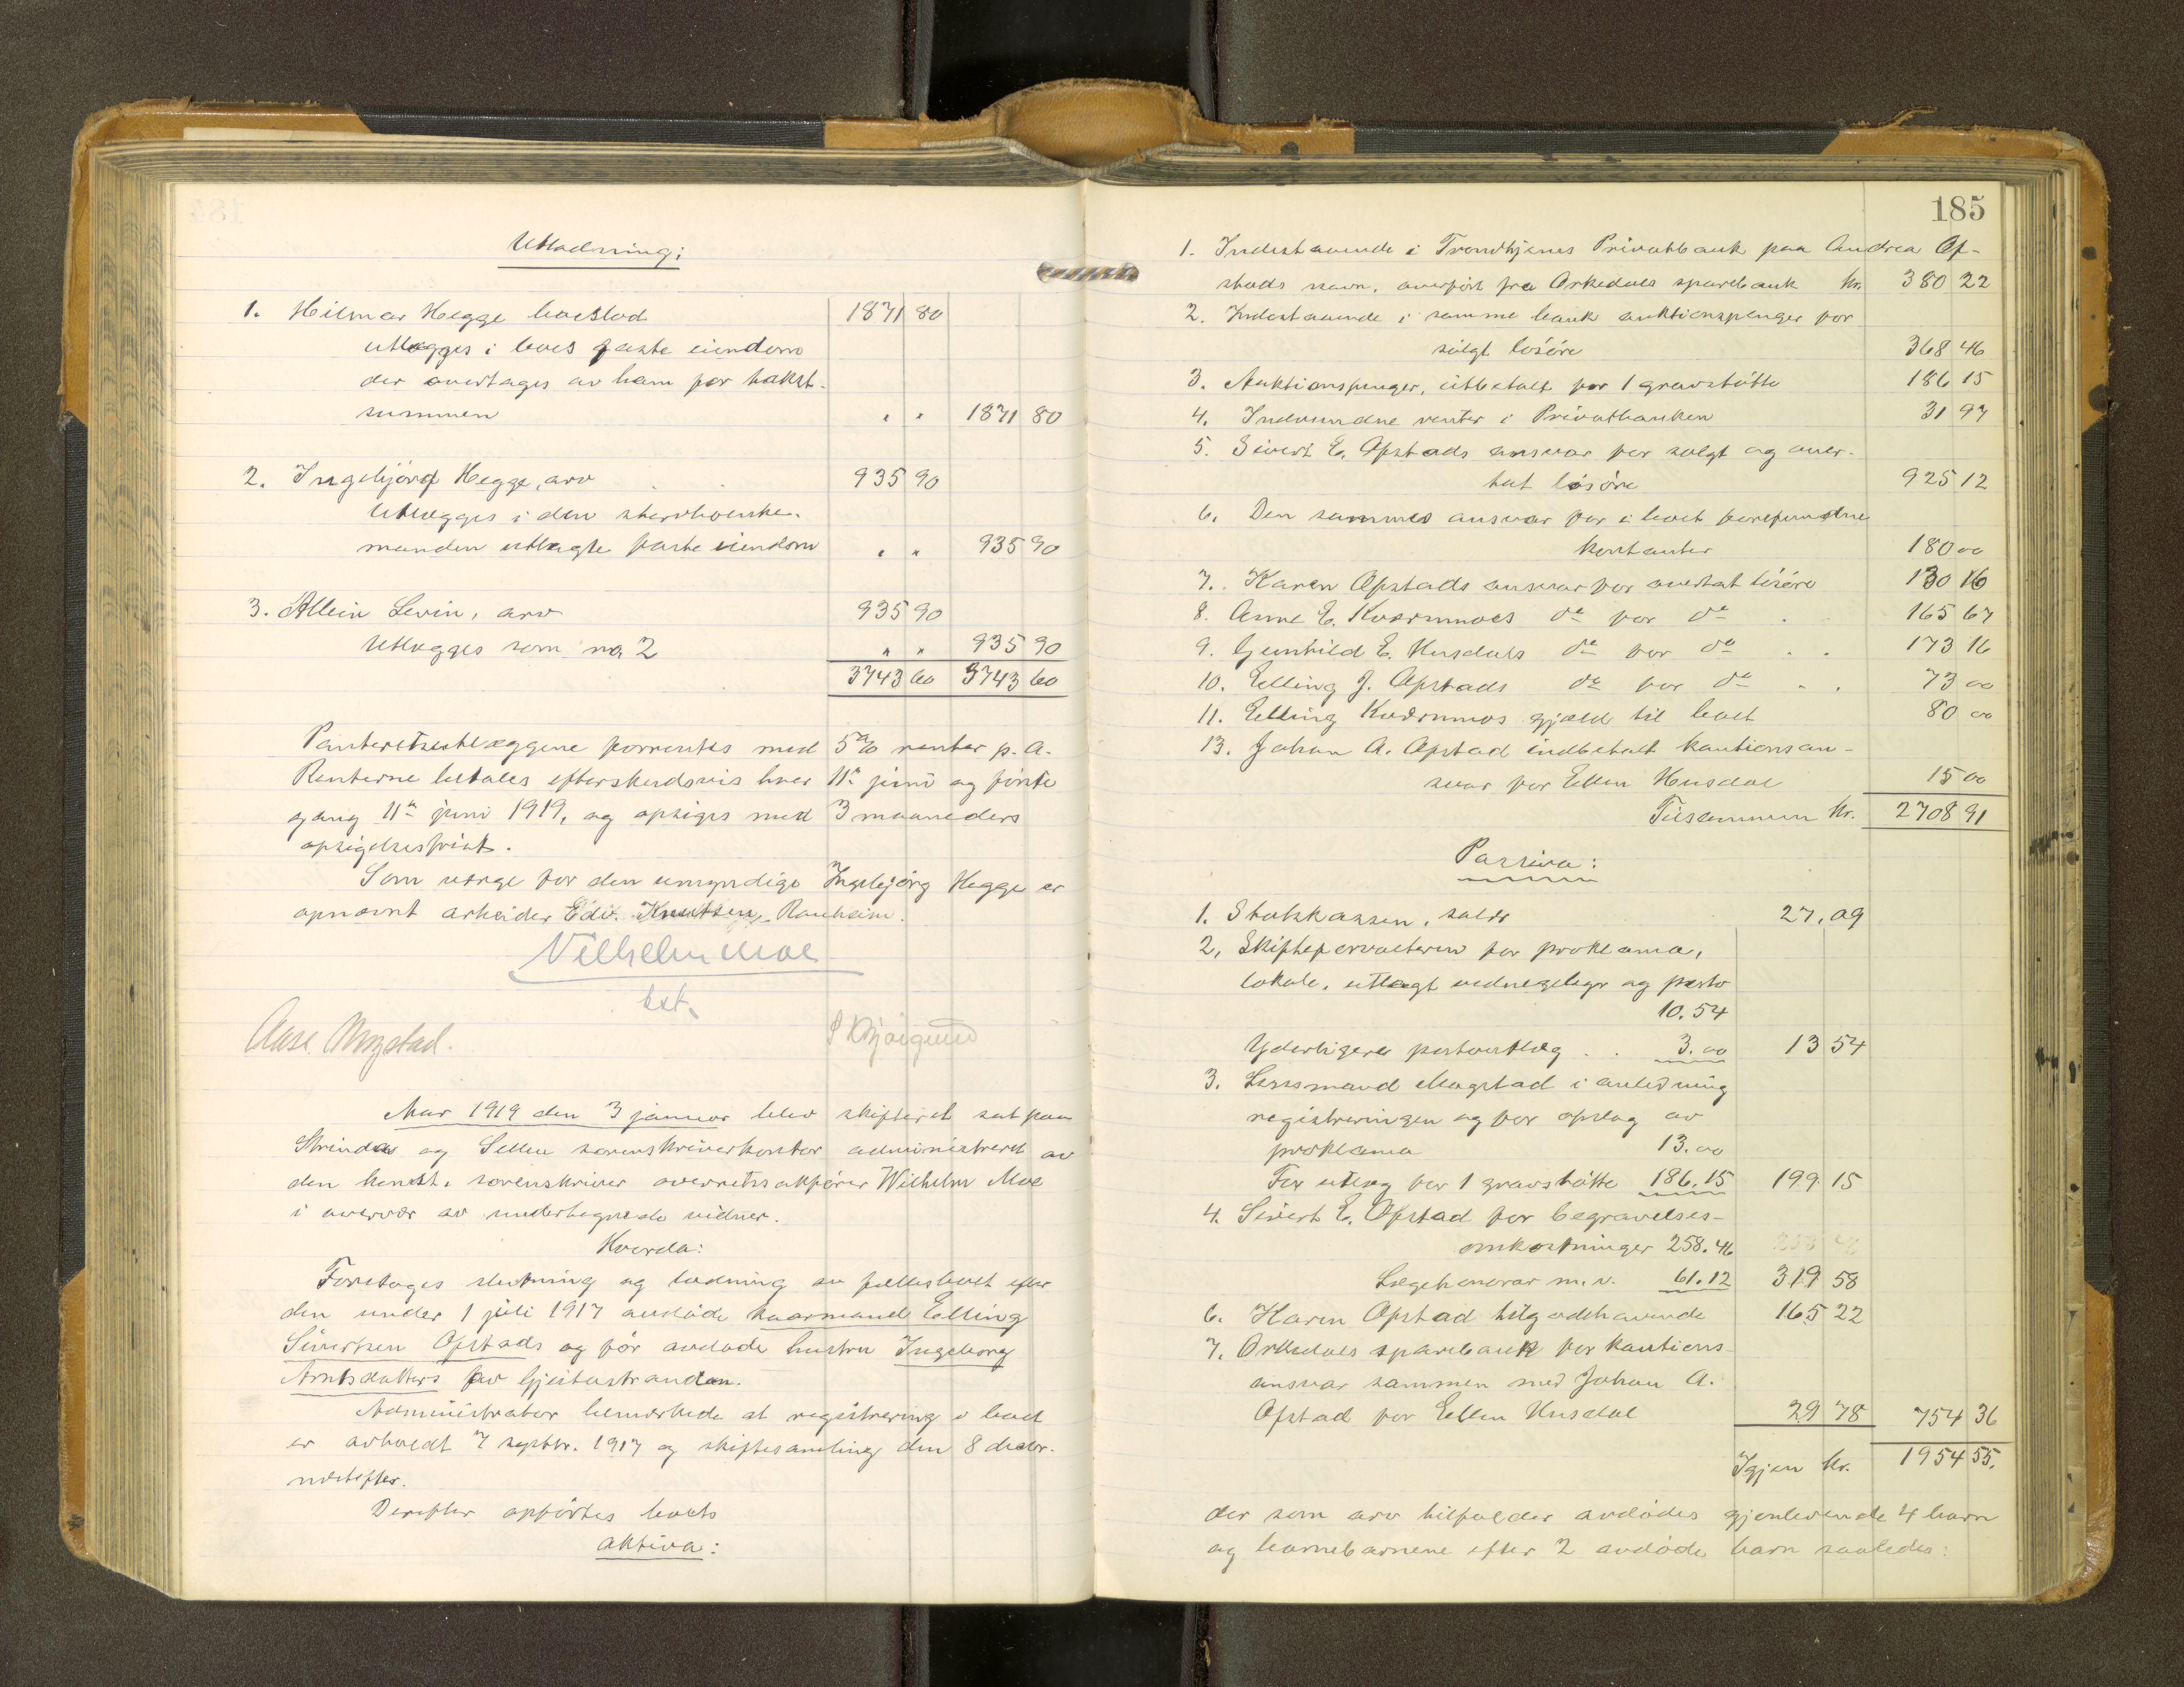 Utlodning:
1. Hilmar Hegge boeslod 1871 80
utlægges i boets faste eiendom
der overtages av ham for takst-
summen " " 1871 80
2. Ingebjørg Hegge, arv 935 90
Utlægges i den
manden utlagte faste eiendom " " 935 90
3. Allein Levin, arv 935 90
Utlægges som no 2 " " 935 90
3743 60 3743 60
forrentes med 5% renter p. a.
Renterne betales efterskudsvis hver 11te juni og første
gang 11te juni 1919, og opsiges med 3 maaneders
opsigelsesfrist.
Som værge for den umyndige Ingebjörg Hegge er
opnævnt arbeider Edv. Knutsen, Ranheim.
Vilhelm Moe
kst.
Aase Mogstad.
Aar 1919 den 3 januar blev skifteret sat paa
Strinda og Selbu sorenskriverkontor administreret av
den konst. sorenskriver overretssakfører Wilhelm Moe
i overvær av undertegnede vidner.
Hvorda:
Foretages slutning og lodning av fællesboet efter
den under 1 juli 1917 avdøde kaarmand Elling
Sivertsen Opstads og før avdøde hustru Ingeborg
Arntsdatters fra Gjeitastranden.
Administrator bemerkede at registrering i boet
er avholdt 7 septbr. 1917 og skiftesamling den 8 decbr.
næstefter.
Derefter opførtes boets
aktiva:
185
1. Indestaaende i Trondhjems Privatbank paa Andrea Op-
stads navn, overført fra Orkedals sparebank kr. 380 22
2. Indestaaende i samme bank auktionspenger for
solgt løsøre 368 46
3. Auktionspenger, utbetalt for 1 gravstøtte 186 15
4. Indvundne renter i Privatbanken 31 97
5. Sivert E. Opstads ansvar for solgt og over-
tat løsøre 925 12
6. Den sammes ansvar for i boet forefundne
kontanter 180 00
7. Karen Opstads ansvar for overtat løsøre 130 16
8. Anne E. Kværnmoes do for do 165 67
9. Gunhild E. Husdals do for do 173 16
10. Elling J. Opstads do for do 73 00
11. Elling Kværnmos gjæld til boet 80 00
13. Johan A. Opstad indbetalt kautionsan-
svar for Ellen Husdal 15 00
Tilsammen kr. 2708 91
Passiva:
1. Statskassen, saldo 27.09
2. Skifteforvalteren for proklama,
lokale, utlagt vidnegebyr og porto
10.54
Yderligere portoutlæg 3.00 13 54
3. Lensmand Mogstad i anledning
registreringen og for opslag av
proklama 13.00
For utlæg for 1 gravstøtte 186.15 199 15
4. Sivert E. Opstad for begravelses-
omkostninger 258.46
Lægehonorar m. v. 61.12 319 58
6. Karen Opstad tilgodehavende 165 22
7. Orkedals sparebank for kautions-
ansvar sammen med Johan A.
Opstad for Ellen Husdal 29 78 754 36
Igjen kr. 1954 55.
der som arv tilfalder avdødes gjenlevende 4 barn
og barnebarnene efter 2 avdøde barn saaledes: